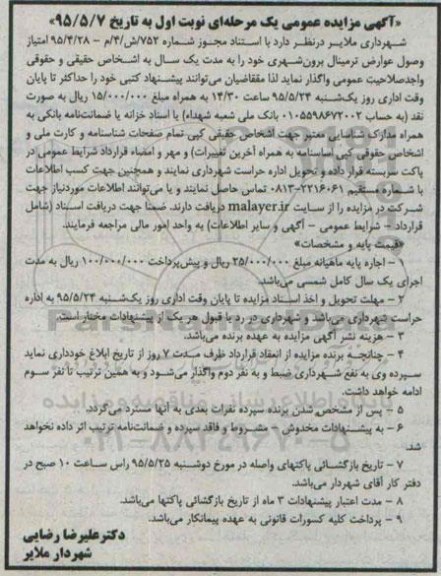 «آگهی مزایده عمومی یک مرحله‌ای نوبت اول به تاریخ ۹۵/۵/۷»
شهرداری ملایر درنظر دارد با استناد مجوز شماره ۷۵۲/ش/۴/م - ۹۵/۴/۲۸ امتیاز
وصول عوارض ترمینال برون‌شهری خود را به مدت یک سال به اشخاص حقیقی و حقوقی
واجدصلاحیت عمومی واگذار نماید لذا متقاضیان می‌توانند پیشنهاد کتبی خود را حداکثر تا پایان
وقت اداری روز یک‌شنبه ۹۵/۵/۲۴ ساعت ۱۴/۳۰ به همراه مبلغ ۱۵/۰۰۰/۰۰۰ ریال به صورت
نقد (به حساب ۰۱۰۵۵۹۸۶۷۲۰۰۲ بانک ملی شعبه شهداء) یا اسناد خزانه یا ضمانتنامه بانکی به
همراه مدارک شناسایی معتبر جهت اشخاص حقیقی کپی تمام صفحات شناسنامه و کارت ملی و
اشخاص حقوقی کپی اساسنامه به همراه آخرین تغییرات) و مهر و امضاء قرارداد شرایط عمومی در
پاکت سربسته قرار داده و تحویل اداره حراست شهرداری نمایند و همچنین جهت کسب اطلاعات
با شماره مستقیم ۲۲۱۶۰۶۱-۰۸۱۳ تماس حاصل نمایند و یا می‌توانند اطلاعات موردنیاز جهت
شرکت در مزایده را از سایت malayer.ir دریافت دارند. ضمناً جهت دریافت اسناد (شامل
قرارداد - شرایط عمومی - آگهی و سایر اطلاعات) به واحد امور مالی مراجعه فرمایند.
«قیمت پایه و مشخصات»
۱ - اجاره پایه ماهیانه مبلغ ۲۵/۰۰۰/۰۰۰ ریال و پیش‌پرداخت ۱۰۰/۰۰۰/۰۰۰ ریال به مدت
اجرای یک سال کامل شمسی می‌باشد.
۲ - مهلت تحویل و اخذ اسناد مزایده تا پایان وقت اداری روز یک‌شنبه ۹۵/۵/۲۴ به اداره
حراست شهرداری می‌باشد و شهرداری در رد یا قبول هر یک از پیشنهادات مختار است.
۳ - هزینه نشر آگهی مزایده به عهده برنده می‌باشد.
۴ - چنانچه برنده مزایده از انعقاد قرارداد ظرف مدت ۷ روز از تاریخ ابلاغ خودداری نماید
سپرده وی به نفع شهرداری ضبط و به نفر دوم واگذار می‌شود و به همین ترتیب تا نفر سوم
ادامه خواهد داشت.
۵ - پس از مشخص شدن برنده سپرده نفرات بعدی به آنها مسترد می‌گردد.
۶ - به پیشنهادات مخدوش - مشروط و فاقد سپرده و ضمانت‌نامه ترتیب اثر داده نخواهد
شد.
۷ - تاریخ بازگشائی پاکتهای واصله در مورخ دوشنبه ۹۵/۵/۲۵ راس ساعت ۱۰ صبح در
دفتر کار آقای شهردار می‌باشد.
۸ - مدت اعتبار پیشنهادات ۳ ماه از تاریخ بازگشائی پاکتها می‌باشد.
۹ - پرداخت کلیه کسورات قانونی به عهده پیمانکار می‌باشد.
دکترعلیرضا رضایی
شهردار ملایر